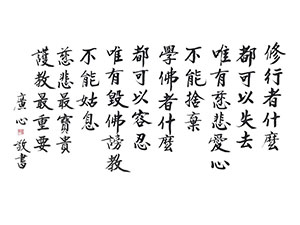 修行者什麼
都可以失去
唯有慈悲愛心
不能捨棄
學佛者什麼
都可以容忍
唯有毀佛謗教
不能姑息
慈悲最寶貴
護教最重要
廣心 敬書